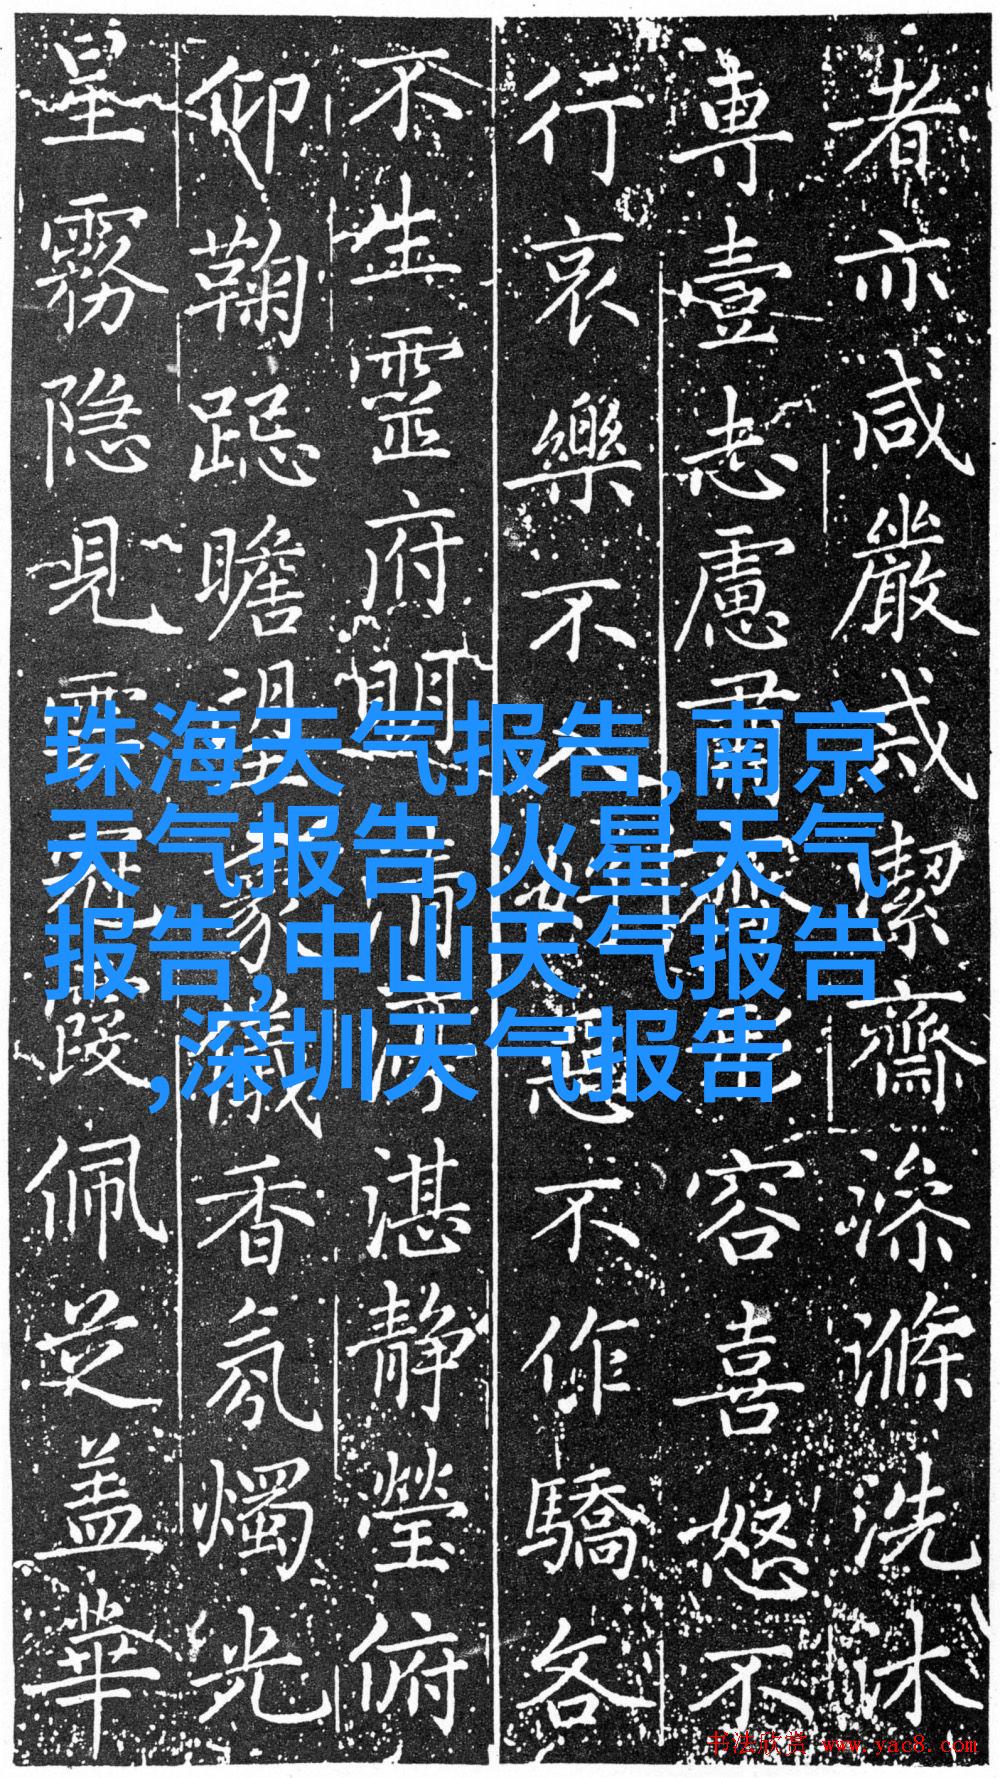 者亦咸嚴戒潔齋滌滌洗沐
專壹志慮肅齋容喜怒不
行哀樂不入惡不作驕各
不生靈府閒清湛靜瑩俯
仰鞠跽瞻望象儀香氛燭光
星霧隐見雲冠霞佩芝盖華
珠海天气报告,南京
天气报告,火星天气
报告,中山天气报告
,深圳天气报告
书法欣赏 www.yac8.com